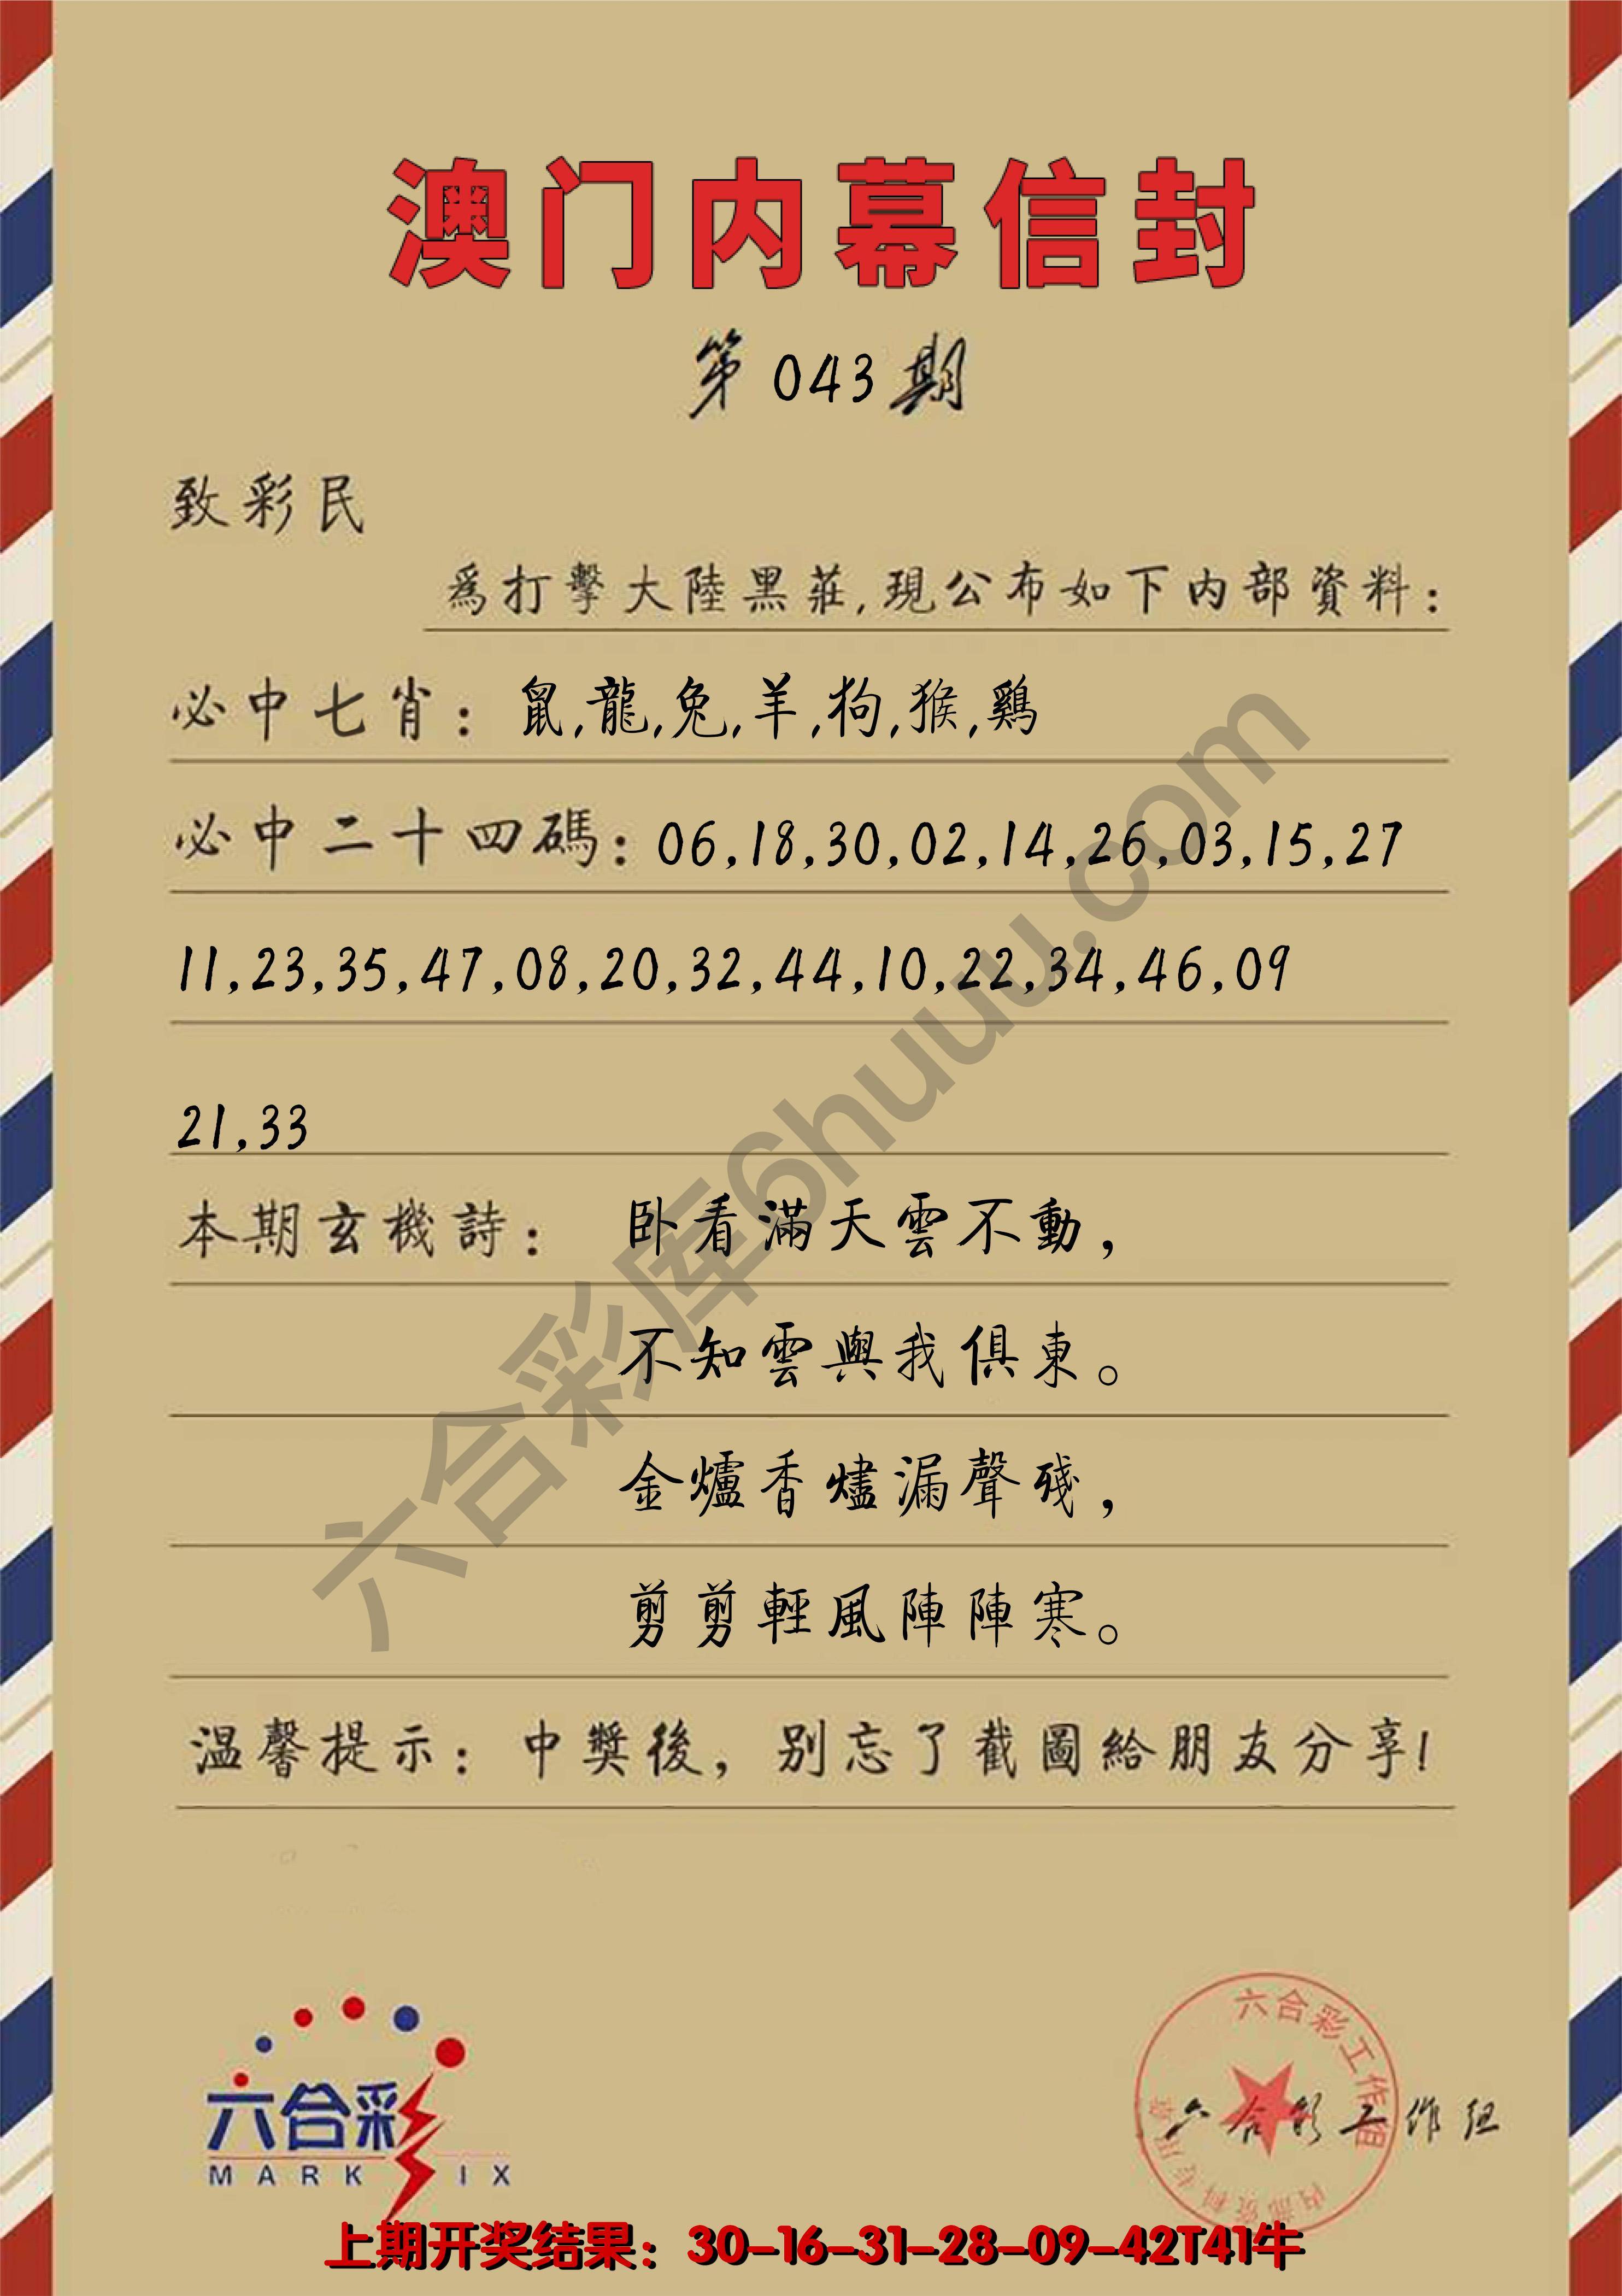 澳门内幕信封
第043期
致彩民
為打擊大陸黑莊,現公布如下内部資料:
必中七肖: 鼠,龍,兔,羊,狗,猴,鷄
必中二十四碼: 06,18,30,02,14,26,03,15,27
11,23,35,47,08,20,32,44,10,22,34,46,09
21,33
本期玄機詩: 卧看滿天雲不動,
不知雲與我俱東。
金爐香燼漏聲殘,
剪剪輕風陣陣寒。
温馨提示: 中獎後, 别忘了截圖給朋友分享!
六合彩库6huuu.com
六合彩
MARK IX
六合彩工作组
内部资料专用章
六合彩工作组
上期开奖结果: 30-16-31-28-09-42T41牛